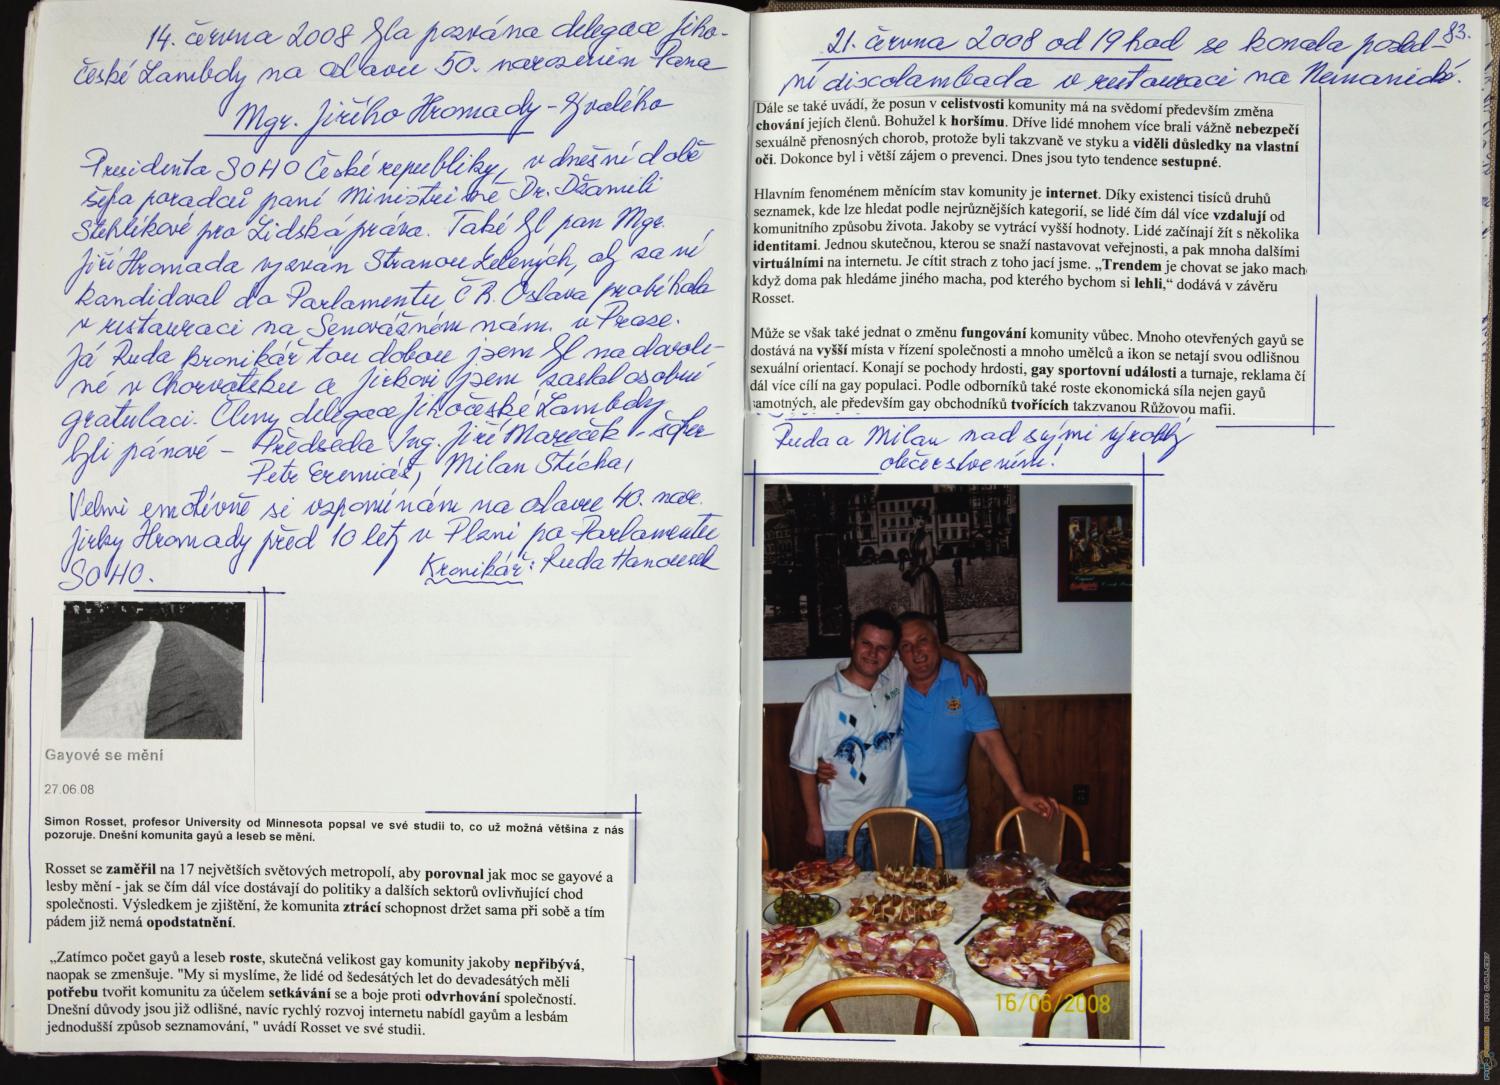 14. června 2008 byla pozvána delegace Jiho-
české Lambdy na oslavu 50. narozenin Pana
Mgr. Jiřího Hromady - Kvalého
Presidenta SOHO České republiky, v dnešní době
šéfa poradců paní Ministrině Dr. Džamili
Stehlíkové pro Lidská práva. Také byl pan Mgr.
Jiří Hromada vyzván Stranou Zelených, aby za ni
kandidoval do Parlamentu ČR. Oslava probíhala
v restauraci na Senovážném nám. v Praze.
Já Ruda kronikář tou dobou jsem byl na dovole-
né v Chorvatsku a Jirkovi jsem zaslal osobně
gratulaci. Členy delegace Jihočeské Lambdy
byli pánové - Předseda Ing. Jiří Mareček - šofér
Petr Eremiáš, Milan Stícha,
Velmi emotivně si vzpomínám na oslavu 40. nar.
Jirky Hromady před 10 lety v Plzni po Parlamentu
SOHO. Kronikář: Ruda Hanousek
Gayové se mění
27.06.08
Simon Rosset, profesor University od Minnesota popsal ve své studii to, co už možná většina z nás
pozoruje. Dnešní komunita gayů a leseb se mění.
Rosset se zaměřil na 17 největších světových metropolí, aby porovnal jak moc se gayové a
lesby mění - jak se čím dál více dostávají do politiky a dalších sektorů ovlivňující chod
společnosti. Výsledkem je zjištění, že komunita ztrácí schopnost držet sama při sobě a tím
pádem již nemá opodstatnění.
„Zatímco počet gayů a leseb roste, skutečná velikost gay komunity jakoby nepřibývá,
naopak se zmenšuje. "My si myslíme, že lidé od šedesátých let do devadesátých měli
potřebu tvořit komunitu za účelem setkávání se a boje proti odvrhování společností.
Dnešní důvody jsou již odlišné, navíc rychlý rozvoj internetu nabídl gayům a lesbám
jednodušší způsob seznamování, " uvádí Rosset ve své studii.
83.
21. června 2008 od 19 hod se konala posled-
ní discolambada v restauraci na Nemanické.
Dále se také uvádí, že posun v celistvosti komunity má na svědomí především změna
chování jejích členů. Bohužel k horšímu. Dříve lidé mnohem více brali vážně nebezpečí
sexuálně přenosných chorob, protože byli takzvaně ve styku a viděli důsledky na vlastní
oči. Dokonce byl i větší zájem o prevenci. Dnes jsou tyto tendence sestupné.
Hlavním fenoménem měnícím stav komunity je internet. Díky existenci tisíců druhů
seznamek, kde lze hledat podle nejrůznějších kategorií, se lidé čím dál více vzdalují od
komunitního způsobu života. Jakoby se vytrácí vyšší hodnoty. Lidé začínají žít s několika
identitami. Jednou skutečnou, kterou se snaží nastavovat veřejnosti, a pak mnoha dalšími
virtuálními na internetu. Je cítit strach z toho jací jsme. „Trendem je chovat se jako mach
když doma pak hledáme jiného macha, pod kterého bychom si lehli,“ dodává v závěru
Rosset.
Může se však také jednat o změnu fungování komunity vůbec. Mnoho otevřených gayů se
dostává na vyšší místa v řízení společnosti a mnoho umělců a ikon se netají svou odlišnou
sexuální orientací. Konají se pochody hrdosti, gay sportovní události a turnaje, reklama čí
dál více cílí na gay populaci. Podle odborníků také roste ekonomická síla nejen gayů
samotných, ale především gay obchodníků tvořících takzvanou Růžovou mafii.
Ruda a Milan nad svými výrobky
občerstvením!
16/06/2008